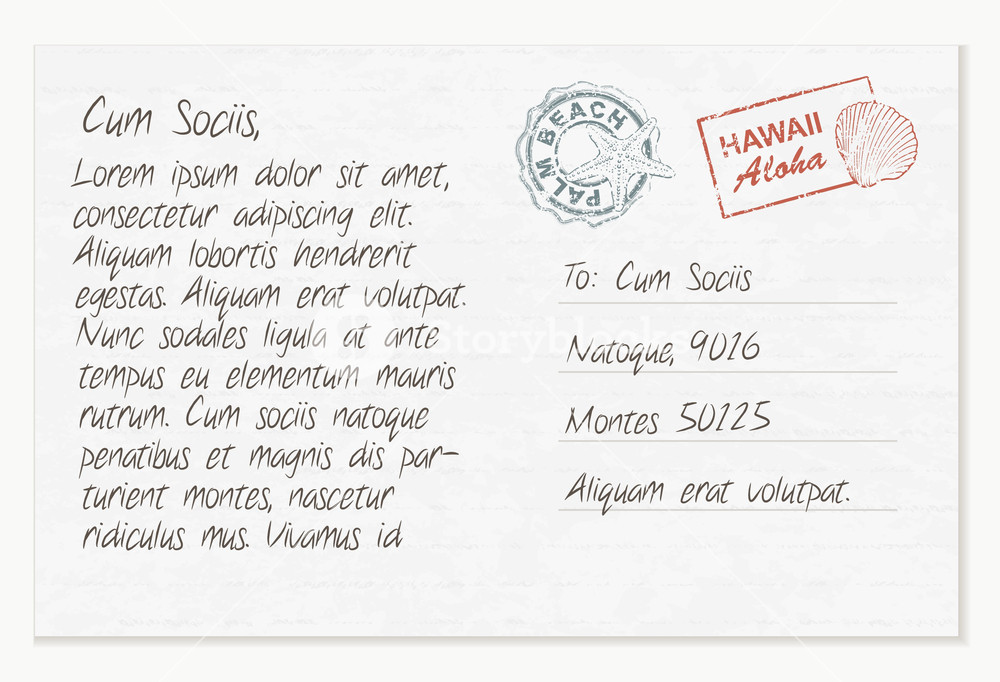 Cum Sociis,
Lorem ipsum dolor sit amet,
consectetur adipiscing elit.
Aliquam lobortis hendrerit
egestas. Aliquam erat volutpat.
Nunc sodales ligula at ante
tempus eu elementum mauris
rutrum. Cum sociis natoque
penatibus et magnis dis par-
turient montes, nascetur
ridiculus mus. Vivamus id
PALM BEACH
HAWAII
Aloha
To: Cum Sociis
Natoque, 9016
Montes 50125
Aliquam erat volutpat.
Storyblocks